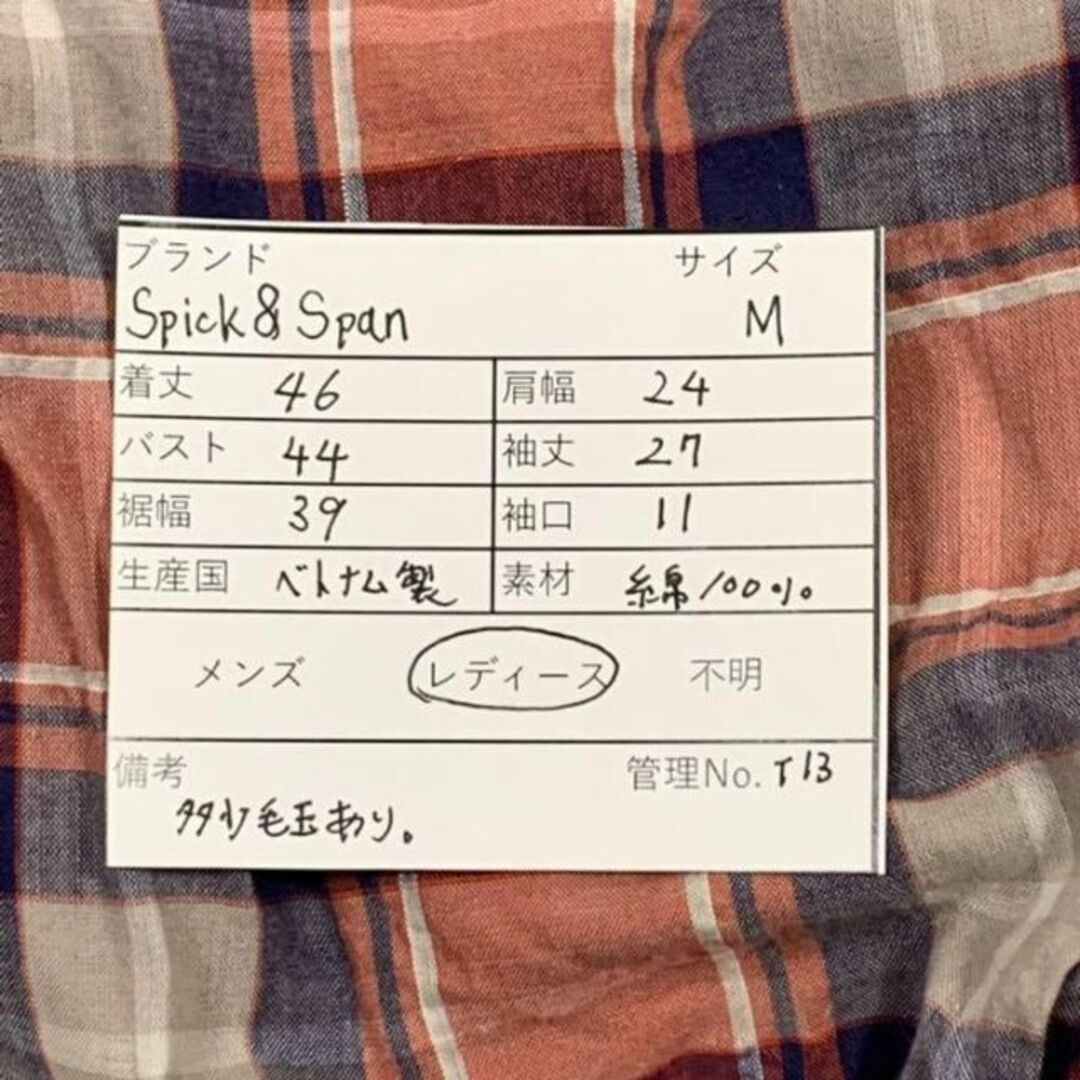 ブランド サイズ
Spick & Span M
着丈 46 肩幅 24
バスト 44 袖丈 27
裾幅 39 袖口 11
生産国 ベトナム製 素材 綿100%
メンズ レディース 不明
備考 管理No. T13
多少毛玉あり。